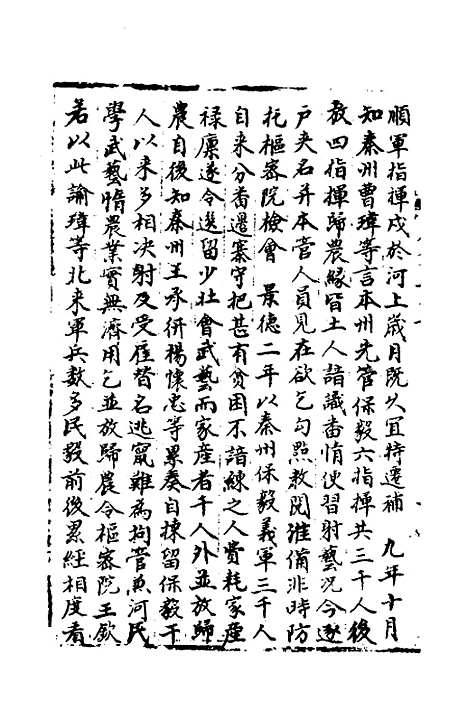 順軍指揮戍於河上歲月既久宜特遷補　九年十月
知秦州曹瑋等言本州先管保毅六指揮共三千人後
放四指揮歸農緣皆土人諳識番情使習射藝况今逐
戶夾名并本管人員見在欲乞勾點教閱准備非時防
托樞密院檢會　景德二年以秦州保毅義軍三千人
自来分番邊寨守把甚有貧困不諳練之人費耗家產
祿廩遂令選留少壮會武藝而家產者千人外並放歸
農自後知秦州王承僎楊懷忠等累奏自揀留保毅千
人以来多相决射及受雇替名逃竄難為拘管兼河民
學武藝惰農業實無濟用乞並放歸農令樞密院王欽
若以此論瑋等北来軍兵数多民毅前後累經相度看